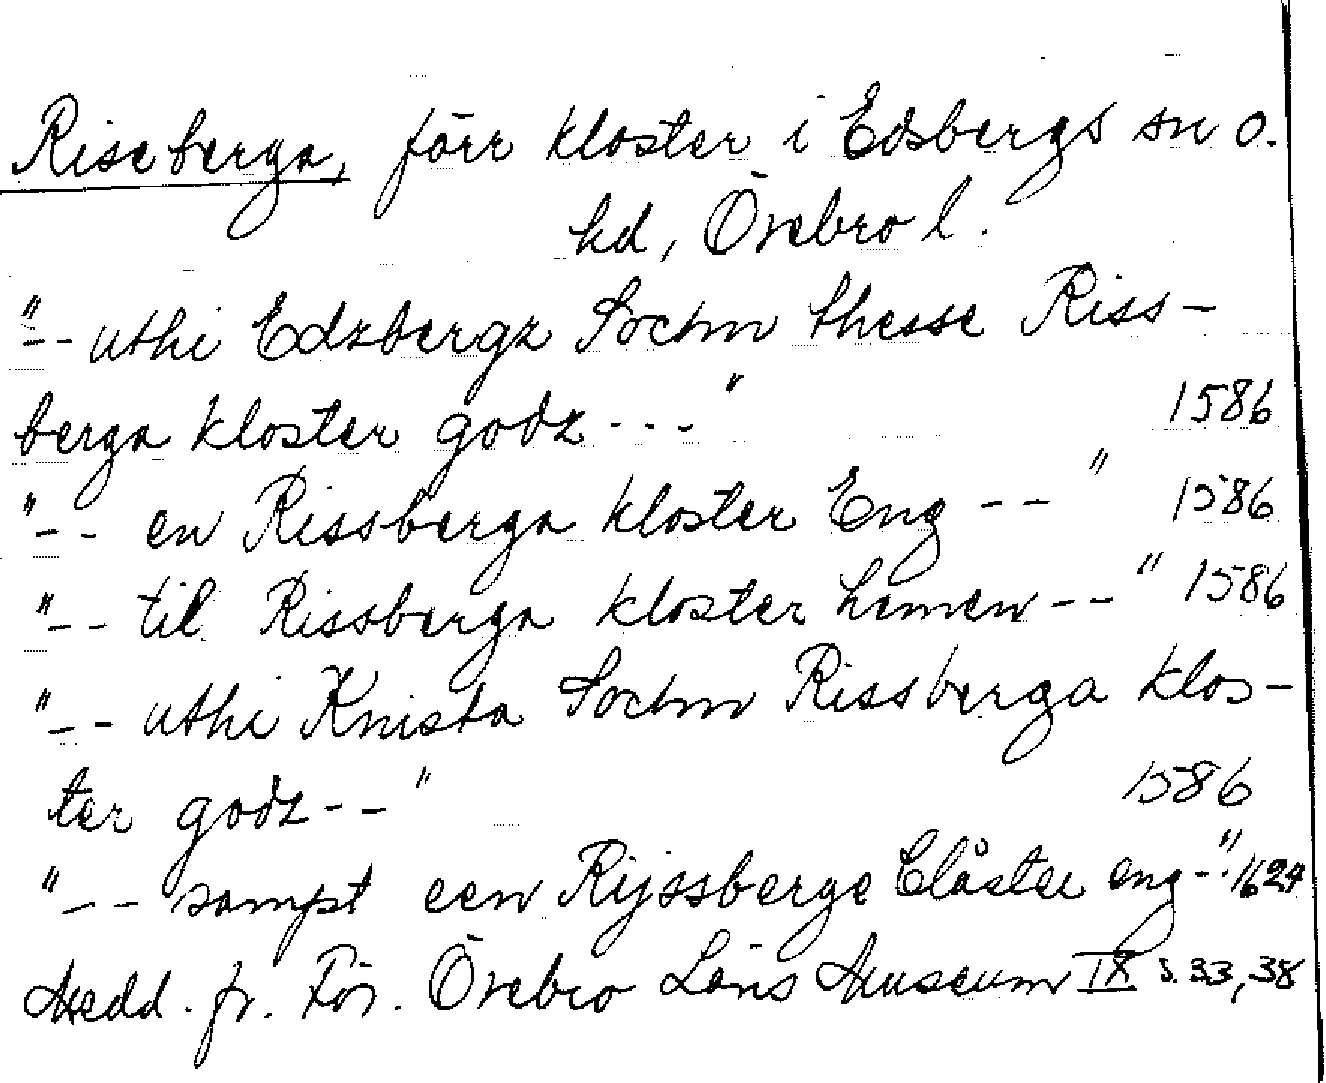 Riseberga, förr kloster i Edsbergs sn o.
hd, Örebro l.
"-- uthi Edzbergz Sochn thesse Riss-
berga kloster godz ---" 1586
"-- en Rissberga kloster Eng --" 1586
"-- til Rissberga kloster hemen --" 1586
"-- uthi Knista Sochn Rissberga klos-
ter godz --" 1586
"-- sampt een Rijssberge Clåster eng --" 1624
Medd. fr. För. Örebro Läns Museum IX s. 33, 38